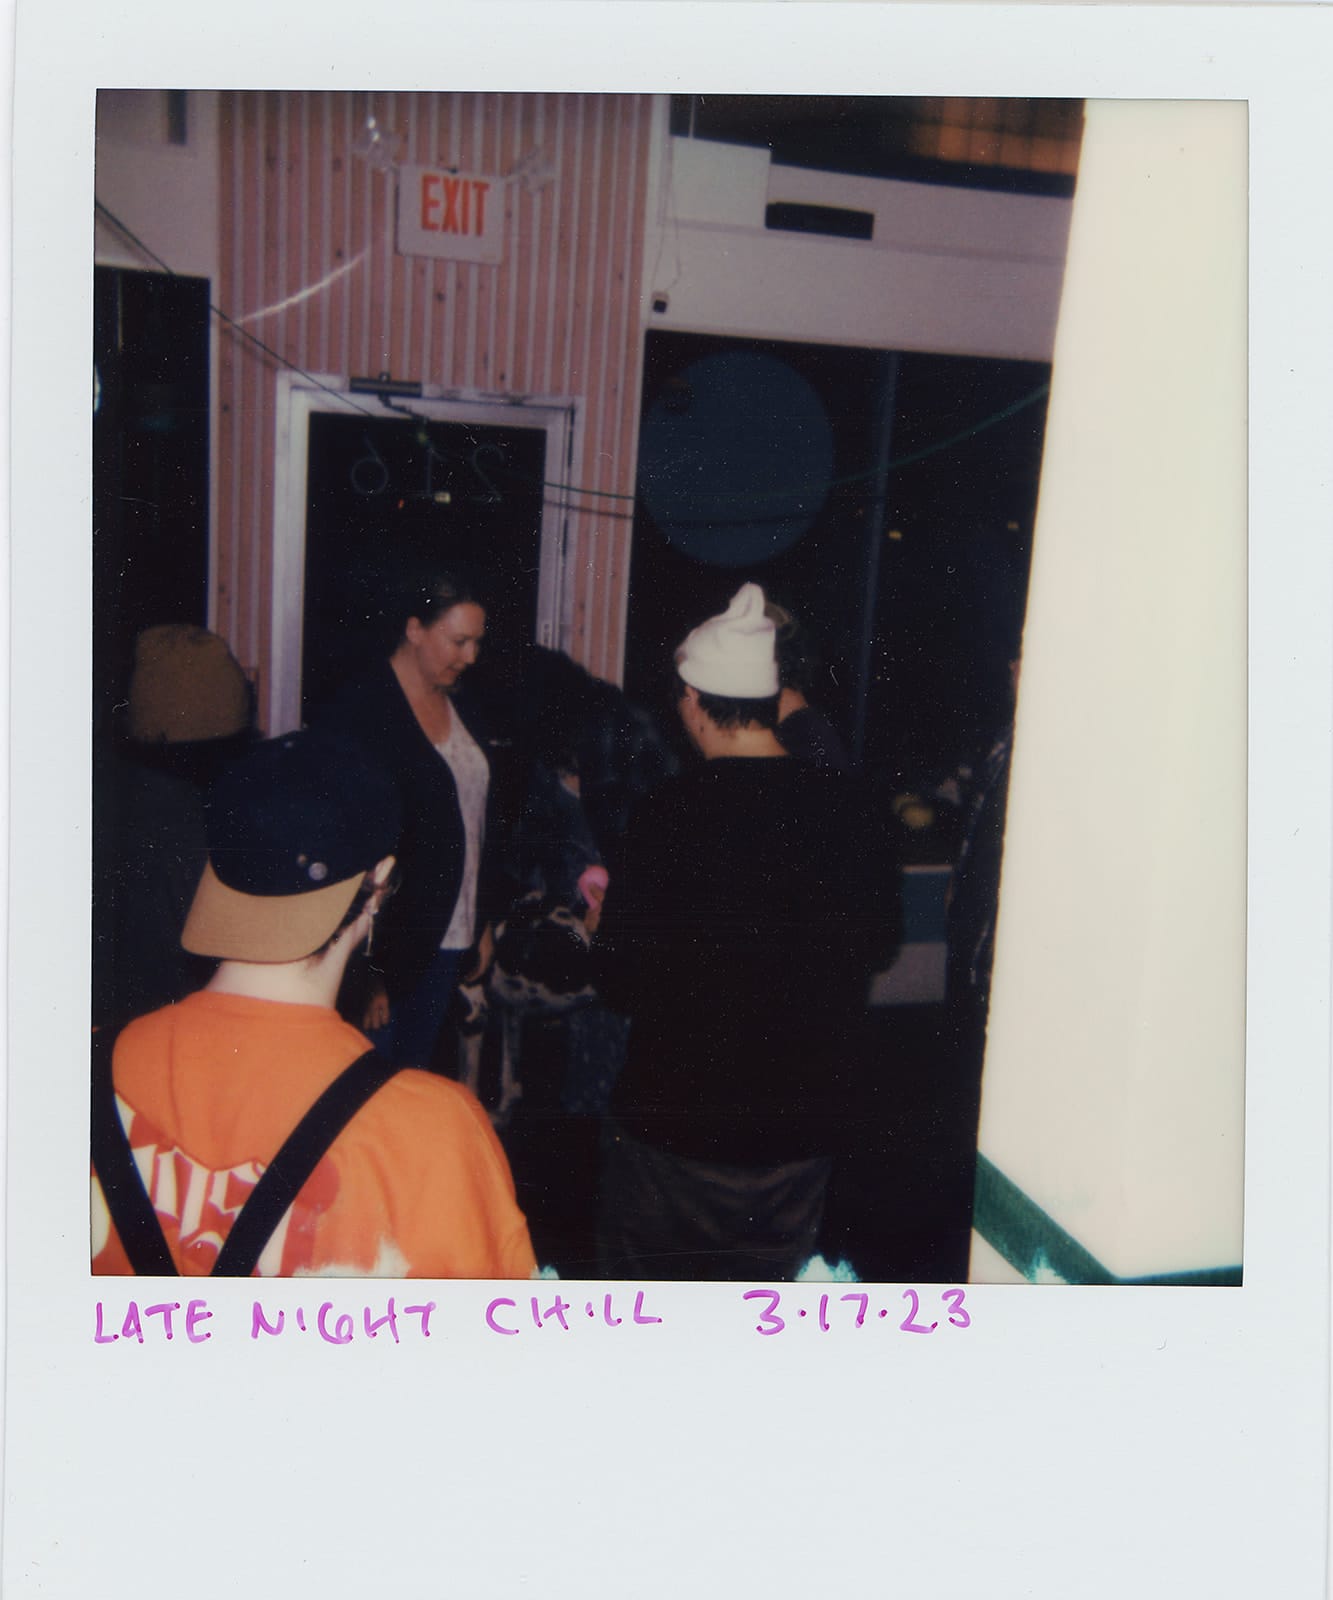 EXIT
216
LATE NIGHT CHILL 3.17.23